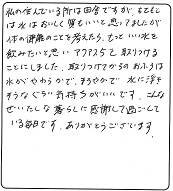 私の住んでいる所は田舎ですが、もともと
は水はおいしく質もいいと思ってましたが
体の健康のことを考えたら、もっといい水を
飲みたいと思いアクアス5と取りつける
ことにしました。取りつけてからのおふろは
水がやわらかで、まろやかで 水に浮き
そうなぐらい気持ちがいいです。こんな
ぜいたくな暮らしに感謝して過ごして
いる毎日です。ありがとうございます。